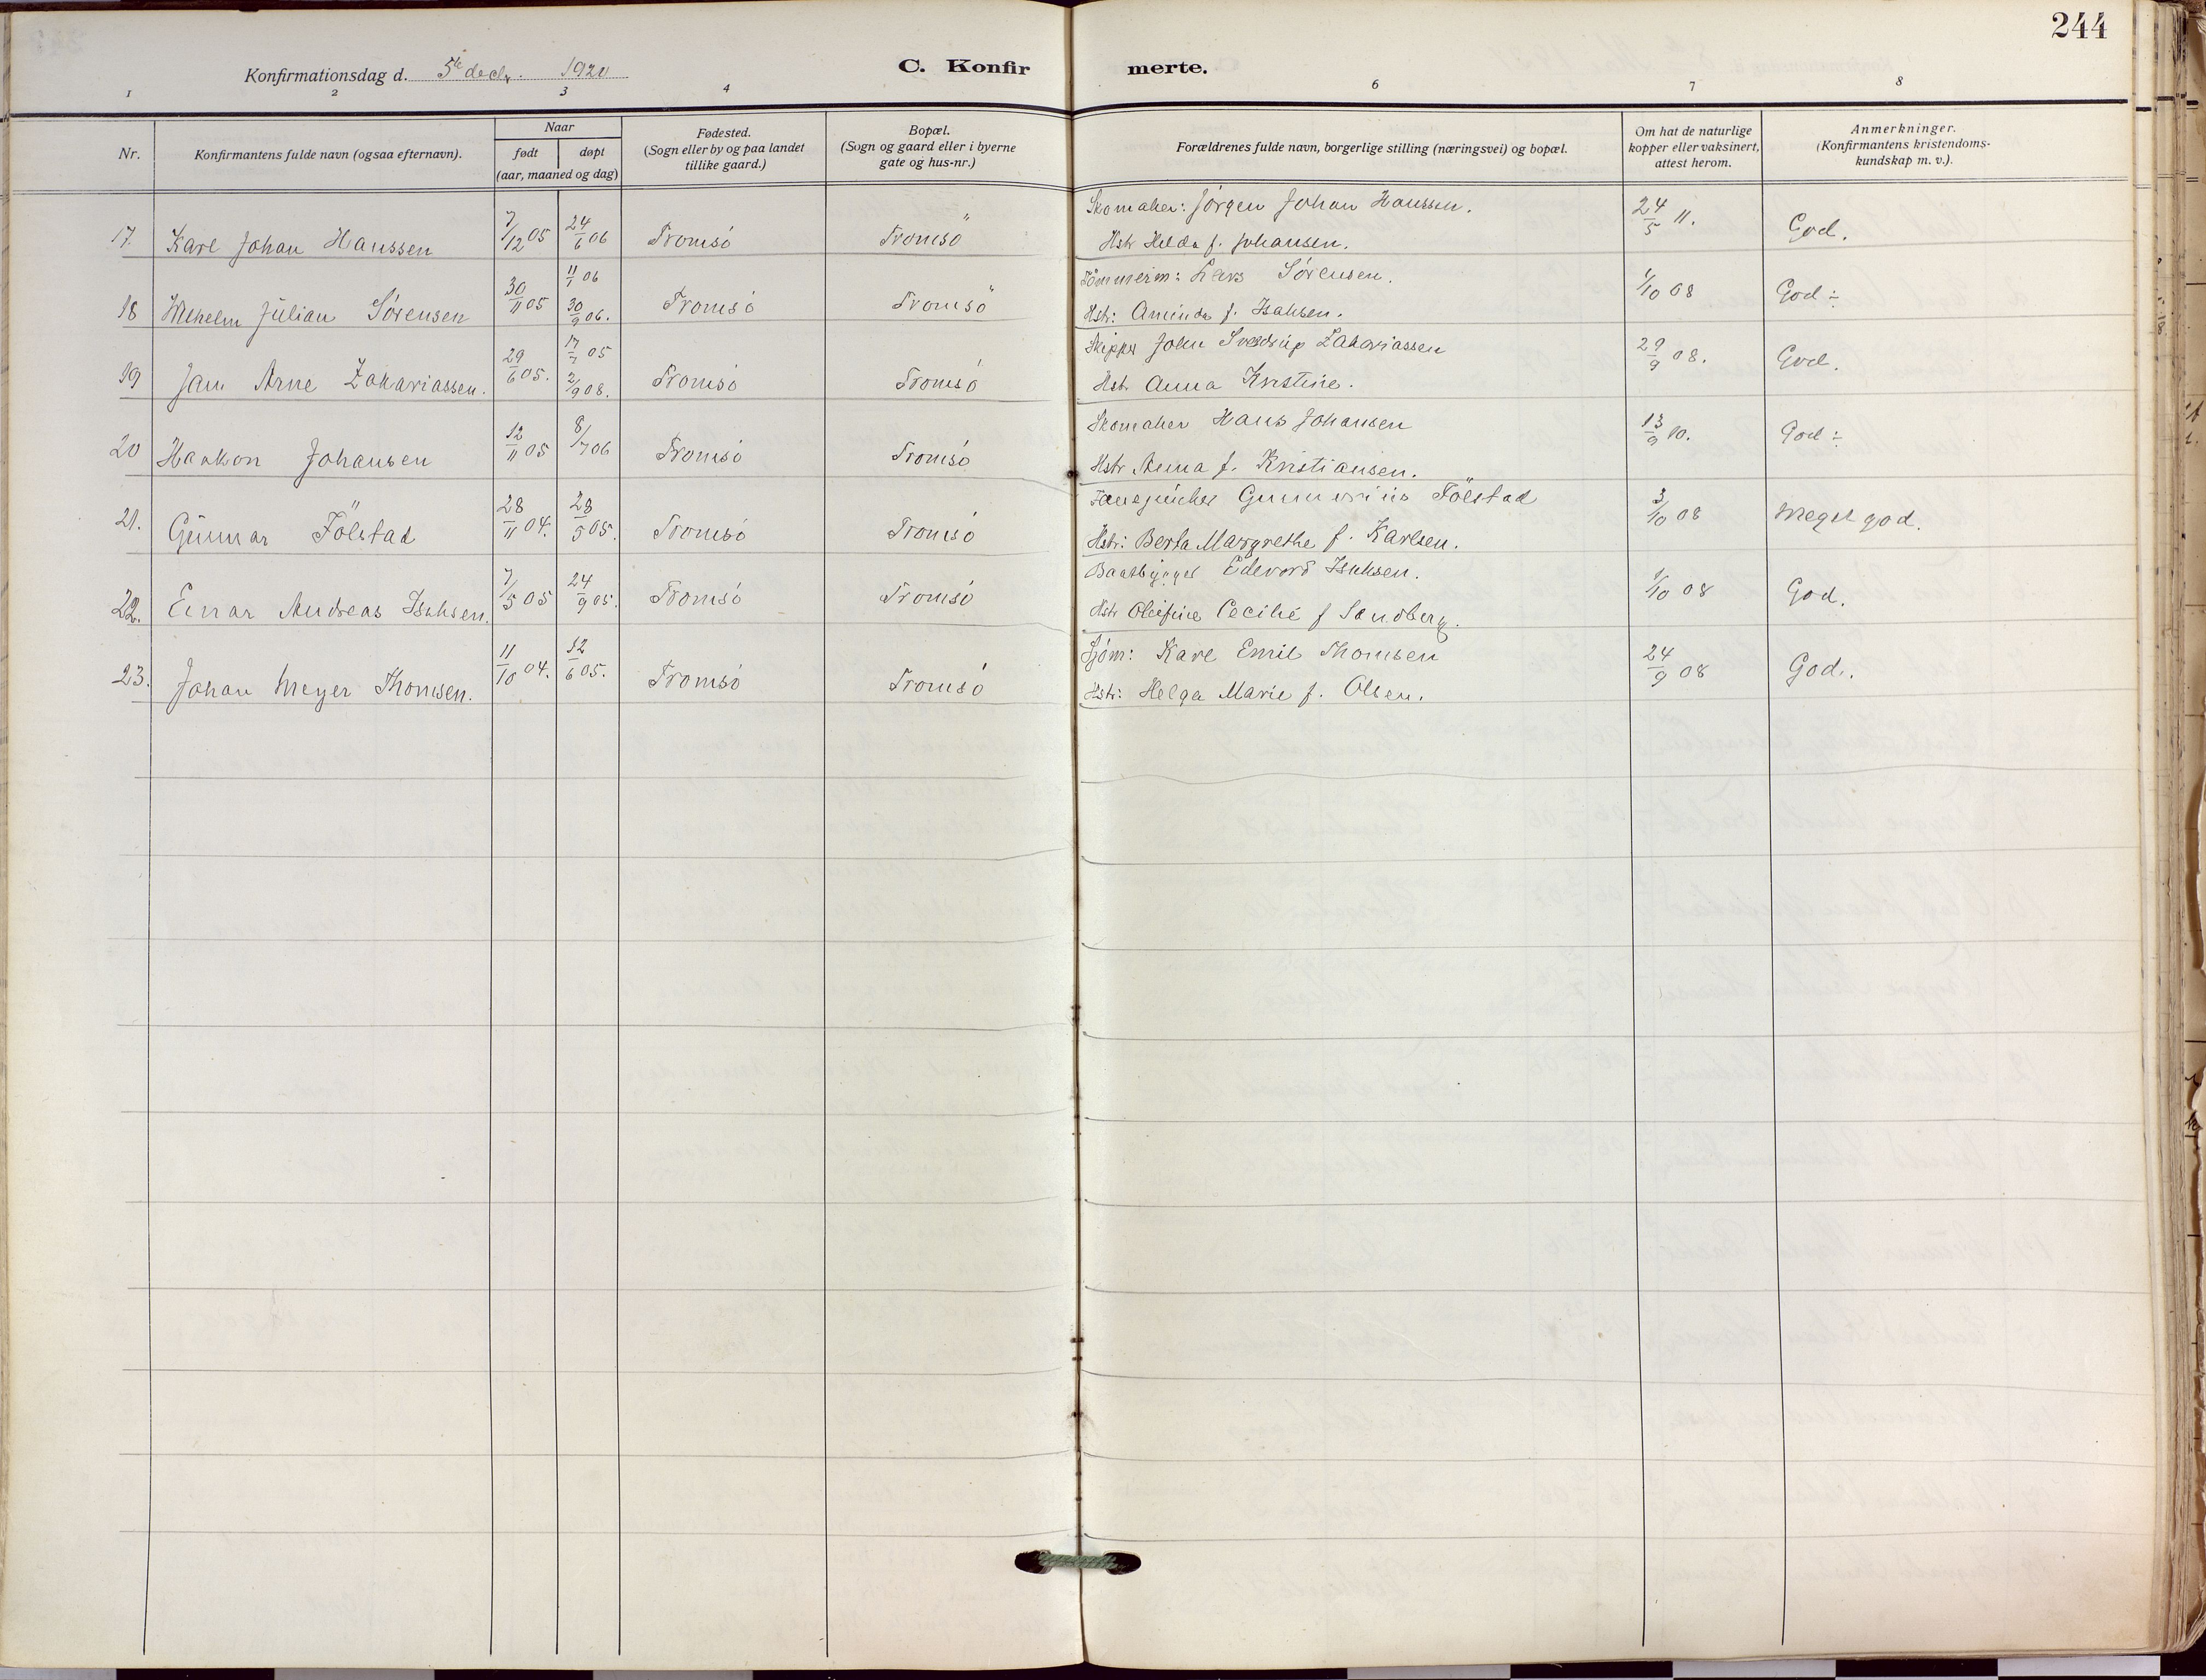 244
Konfirmationsdag d. 5te decbr. 1920 C. Konfirmerte.
1 2 3 4 6 7 8
Nr. Konfirmantens fulde navn (ogsaa efternavn). Naar født døpt (aar, maaned og dag) Fødested. (Sogn eller by og paa landet tillike gaard.) Bopæl. (Sogn og gaard eller i byerne gate og hus-nr.) Forældrenes fulde navn, borgerlige stilling (næringsvei) og bopæl. Om hat de naturlige kopper eller vaksinert, attest herom. Anmerkninger. (Konfirmantens kristendoms-kundskap m. v.).
Skomaker: Jørgen Johan Hanssen.
17. Karl Johan Hanssen 7/12 05 24/6 06 Tromsö Tromsö Hstr Hilda f. Johansen. 24/5 11. God.
11/1 06 Tömmerm: Lars Sörensen.
18 Wilhelm Julian Sörensen 30/11 05 30/9 06. Tromsö Tromsö Hstr: Aminda f. Isaksen. 1/10 08 God ÷
17/7 05 Skipper John Sverdrup Zakariassen
19 Jan Arne Zakariassen. 29/6 05. 2/9 08. Tromsö Tromsö Hstr Anna Kristine. 29/9 08. God.
Skomaker Hans Johansen
20 Haakon Johansen 12/11 05 8/7 06 Tromsö Tromsö Hstr Anna f. Kristiansen. 13/9 10. God ÷
Gunnerius Fölstad
21. Gunnar Fölstad 28/11 04. 28/5 05. Tromsö Tromsö Hstr: Berta Margrethe f. Karlsen. 3/10 08 Meget god.
Baatbygger Edevard Isaksen.
22. Einar Andreas Isaksen. 7/5 05 24/9 05. Tromsö Tromsö Hstr Cecilie f Sandberg. 1/10 08 God.
Sjöm: Karl Emil Thomsen
23. Johan Meyer Thomsen. 11/10 04. 12/6 05. Tromsö Tromsö Hstr: Helga Marie f. Olsen. 24/9 08 God.